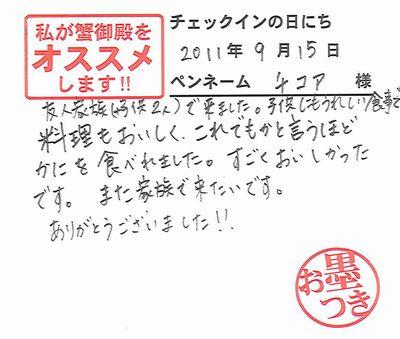 私が蟹御殿を
オススメ
します!!
チェックインの日にち
2011年9月15日
ペンネーム チコア 様
友人家族(子供2人)で来ました。子供にもうれしい食事で
料理もおいしく、これでもかと言うほど
かにを食べれました。すごくおいしかった
です。また家族で来たいです。
ありがとうございました!!
お墨つき